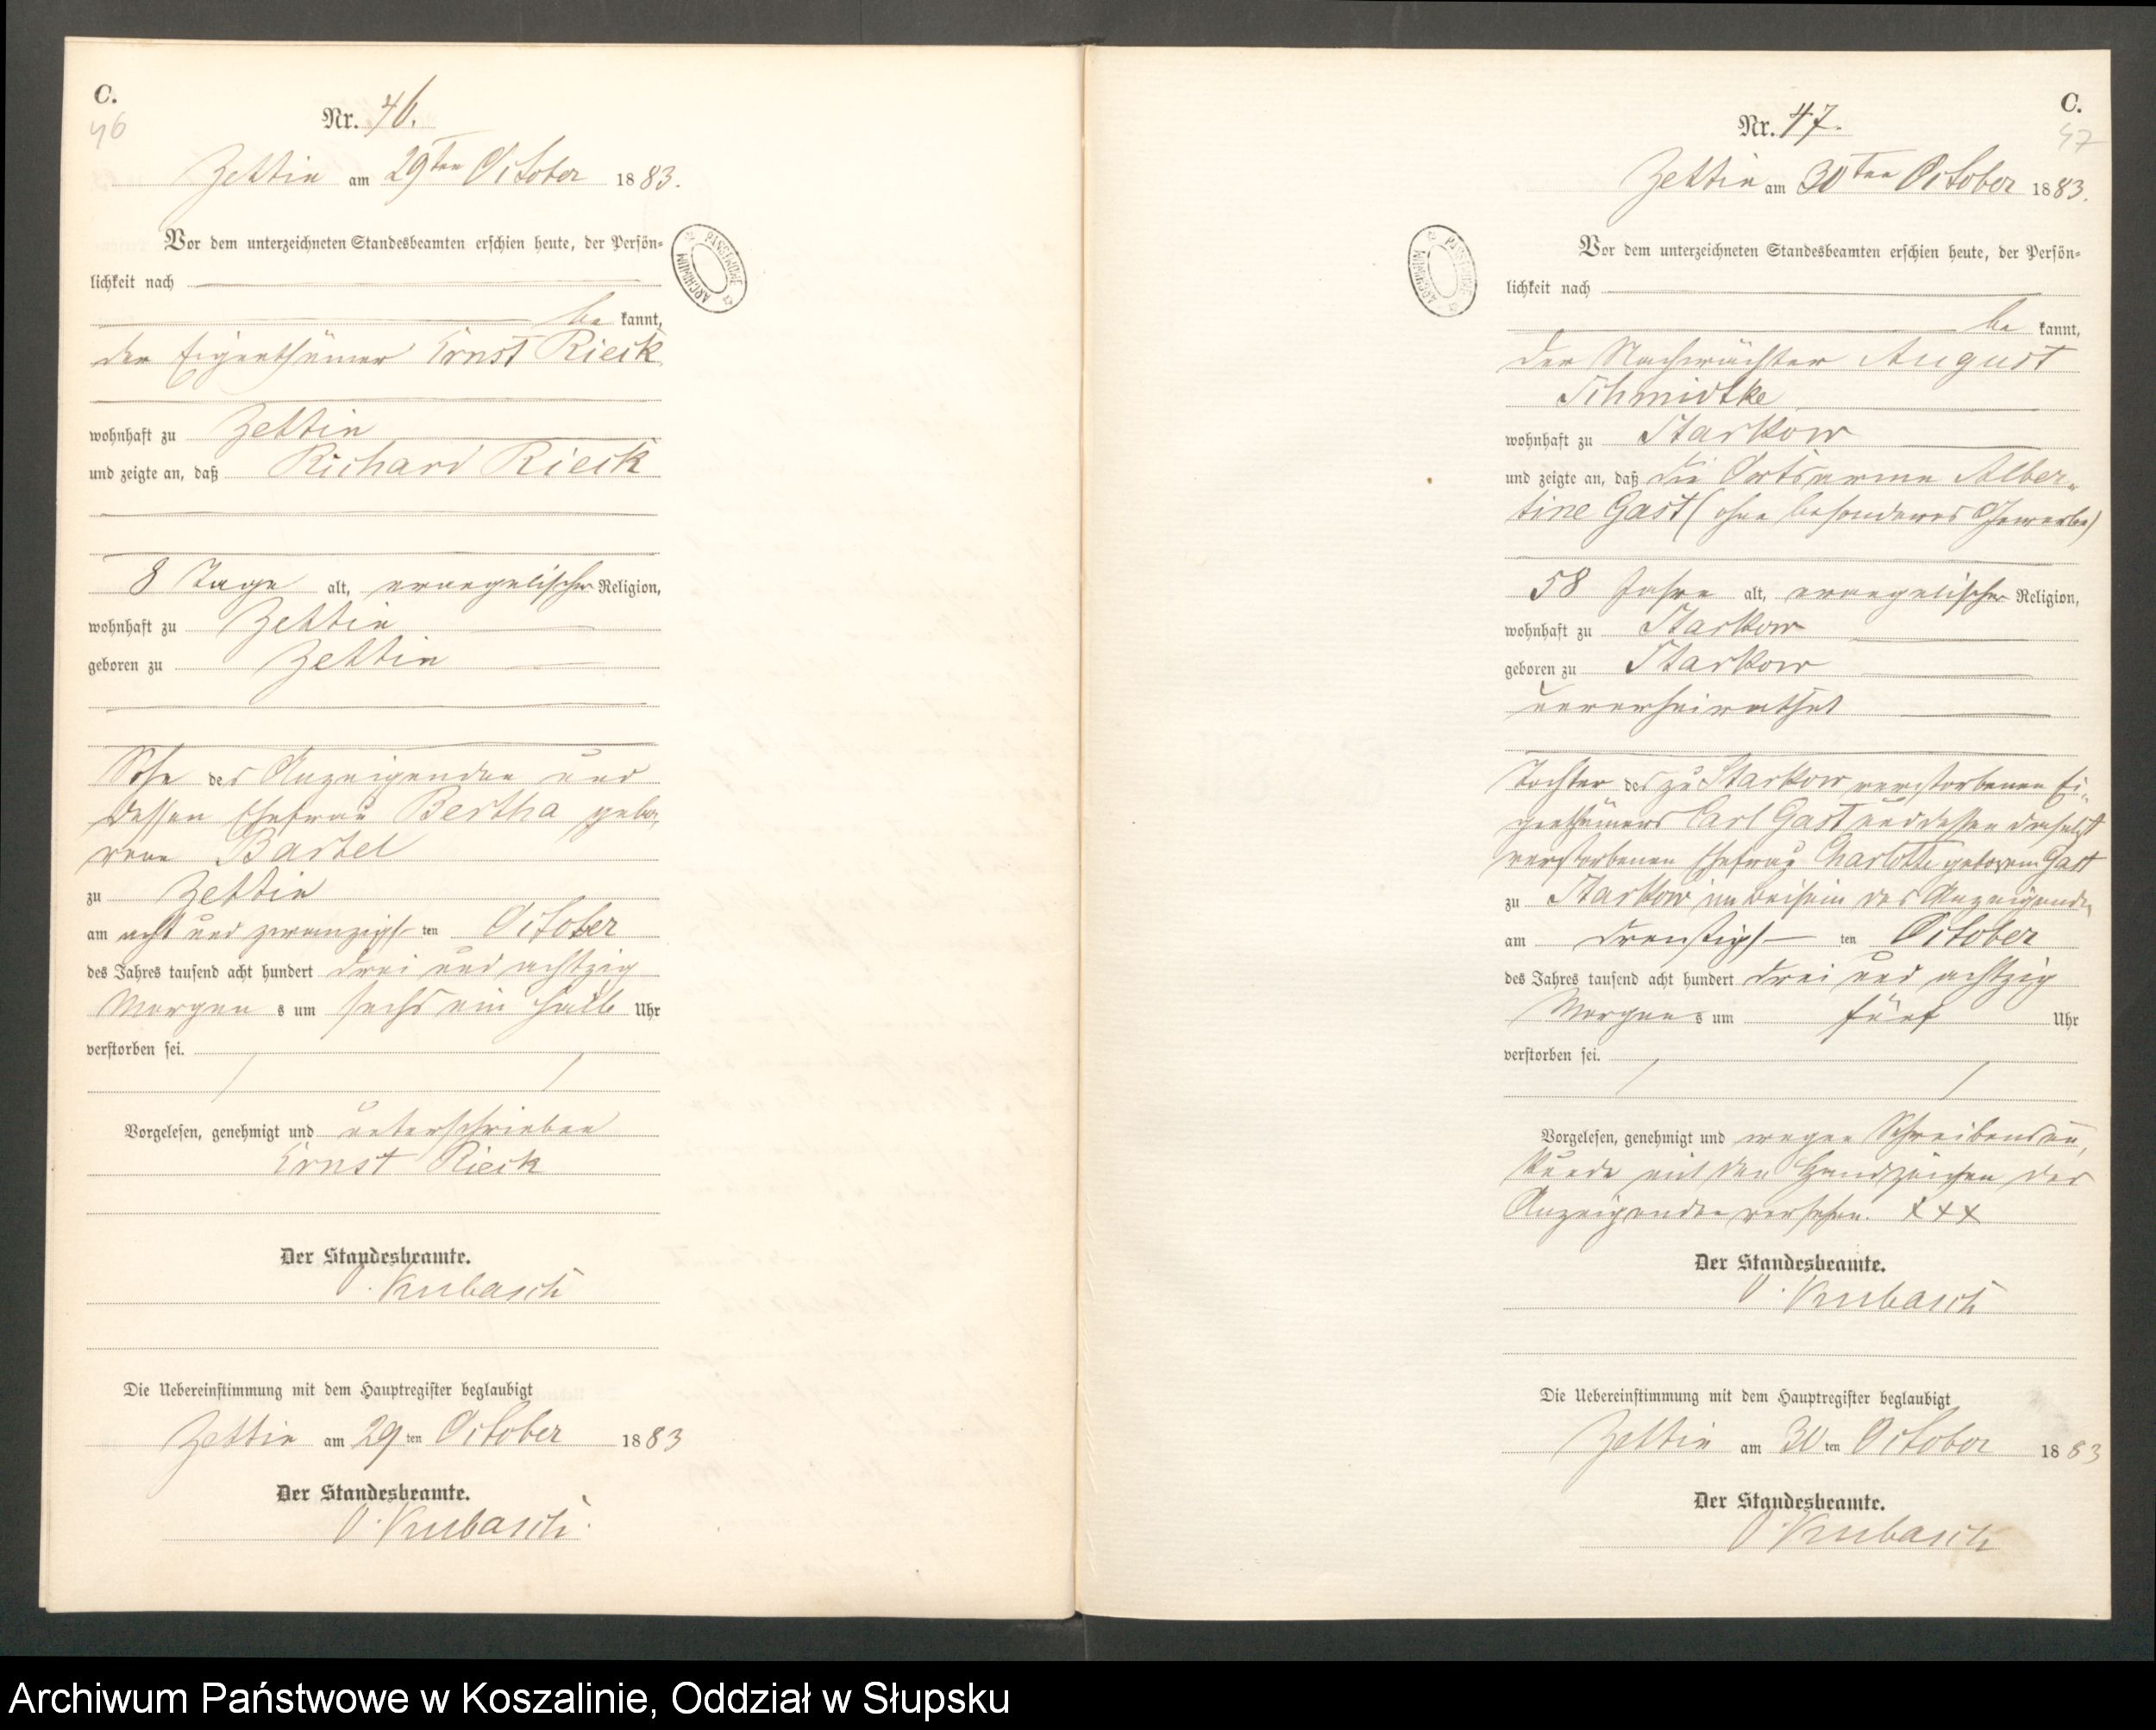 C.
46
Nr. 46.
Zettin am 29ten October 1883.
Vor dem unterzeichneten Standesbeamten erschien heute, der Persön-
lichkeit nach
be kannt,
der Eigenthümer Ernst Rieck
wohnhaft zu Zettin
und zeigte an, daß Richard Rieck
8 Tage alt, evangelischer Religion,
wohnhaft zu Zettin
geboren zu Zettin
Sohn des Anzeigenden und
dessen Ehefrau Bertha gebo,
rene Bartel
zu Zettin
am acht und zwanzigsten October
des Jahres tausend acht hundert drei und achtzig
Morgens um sechs ein halb Uhr
verstorben sei.
Vorgelesen, genehmigt und unterschrieben
Ernst Rieck
Der Standesbeamte.
Kubasch
Die Uebereinstimmung mit dem Hauptregister beglaubigt
Zettin am 29ten October 1883
Der Standesbeamte.
Kubasch.
ARCHIWUM PAŃSTWOWE
C.
47
Nr. 47.
Zettin am 30ten October 1883.
Vor dem unterzeichneten Standesbeamten erschien heute, der Persön-
lichkeit nach
be kannt,
der Nachwächter August
Schmidtke
wohnhaft zu Starkow
und zeigte an, daß die Ortsarme Alber-
tine Gast (ohne besonderes Gewerbe)
58 Jahre alt, evangelischer Religion,
wohnhaft zu Starkow
geboren zu Starkow
unverheirathet
Tochter des zu Starkow verstorbenen Ei-
genthümers Carl Gast und dessen daselbst
verstorbenen Ehefrau Charlotte geborene Gast
zu Starkow im Beisein des Anzeigenden
am dreißigsten October
des Jahres tausend acht hundert drei und achtzig
Morgens um fünf Uhr
verstorben sei.
Vorgelesen, genehmigt und wegen Schreibensun,
kunde mit den Handzeichen des
Anzeigenden versehen. XXX
Der Standesbeamte.
Kubasch
Die Uebereinstimmung mit dem Hauptregister beglaubigt
Zettin am 30ten October 1883
Der Standesbeamte.
Kubasch
ARCHIWUM PAŃSTWOWE
Archiwum Państwowe w Koszalinie, Oddział w Słupsku